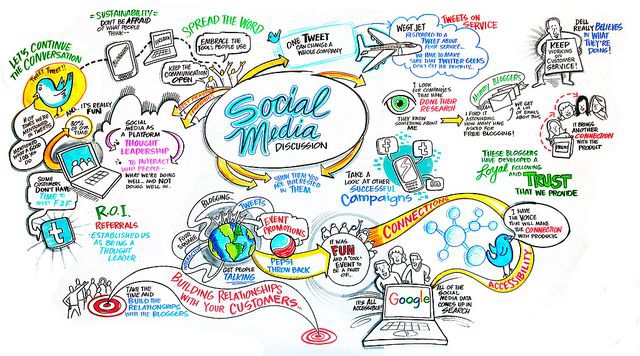 "SUSTAINABILITY"
DON'T BE AFRAID
OF WHAT PEOPLE
THINK...
SPREAD THE WORD
EMBRACE THE
TOOLS PEOPLE USE
KEEP THE
COMMUNICATION
OPEN
LET'S CONTINUE
THE CONVERSATION
TWEET TWEET!!
AND... IT'S REALLY
FUN
80% OF
OUR TIME
SOCIAL
MEDIA AS
A PLATFORM
THOUGHT
LEADERSHIP
TO INTERACT
WITH PEOPLE
WHAT WE'RE DOING
WELL... AND NOT
DOING WELL IN...
SOME
CUSTOMERS
DON'T HAVE
TIME TO
MEET F2F
t
R.O.I
REFERRALS
ESTABLISHED US
AS BEING A
THOUGHT
LEADER
ONE TWEET
CAN CHANGE A
WHOLE COMPANY
WESTJET
RESPONDED TO A
TWEET ABOUT
POOR SERVICE...
WE HAVE TO MAKE
SURE THAT TWITTER GEEKS
DON'T GET THE BENEFITS...
TWEETS ON
SERVICE
DELL
REALLY BELIEVES
IN WHAT
THEY'RE
DOING!
KEEP
WORKING
ON
CUSTOMER
SERVICE!
Social
Media
DISCUSSION
I LOOK
FOR COMPANIES
THAT HAVE
DONE THEIR
RESEARCH
THEY KNOW
SOMETHING ABOUT
ME
MOMMY BLOGGERS
WE GET
A LOT
OF EMAILS
ABOUT THIS
I FIND IT
ASTOUNDING
HOW MANY HAVE
ASKED FOR
FREE BLOGGING!
IT BRINGS
ANOTHER
CONNECTION
WITH THE
PRODUCT
SHOW THEM YOU
ARE INTERESTED
IN THEM
TAKE A
LOOK AT OTHER
SUCCESSFUL
Campaigns
THESE BLOGGERS
HAVE DEVELOPED A
Loyal FOLLOWING
AND
TRUST
THAT WE PROVIDE
BLOGGING...
TWEETS
GET PEOPLE
TALKING
EVENT
PROMOTIONS
PEPSI
THROW BACK
IT WAS
FUN
AND A "COOL"
EVENT TO
BE A PART
OF...
CONNECTIONS
I HAVE
THE VOICE
THAT WILL MAKE
THE CONNECTION
WITH PRODUCTS
ACCESSIBILITY
TAKE THE
TIME AND
BUILD THE
RELATIONSHIPS
WITH THE BLOGGERS
BUILDING RELATIONSHIPS
WITH YOUR CUSTOMERS...
IT'S ALL
ACCESSIBLE!
Google
ALL OF THE
SOCIAL
MEDIA DATA
COMES UP IN
SEARCH